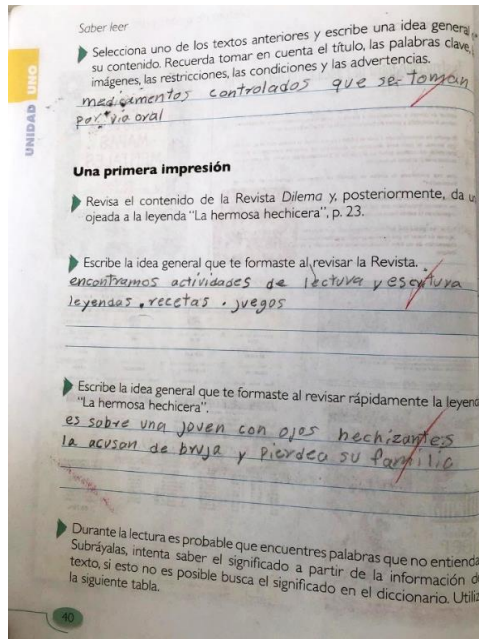 Saber leer
Selecciona uno de los textos anteriores y escribe una idea general
su contenido. Recuerda tomar en cuenta el título, las palabras clave,
imágenes, las restricciones, las condiciones y las advertencias.
medicamentos controlados que se toman
por via oral
UNIDAD UNO
Una primera impresión
Revisa el contenido de la Revista Dilema y, posteriormente, da
ojeada a la leyenda "La hermosa hechicera", p. 23.
Escribe la idea general que te formaste al revisar la Revista.
encontramos actividades de lectura y escritura
leyendas, recetas, juegos
Escribe la idea general que te formaste al revisar rápidamente la
"La hermosa hechicera".
es sobre una joven con ojos hechizantes
la acusan de bruja y pierdea su familia
Durante la lectura es probable que encuentres palabras que no
Subráyalas, intenta saber el significado a partir de la información
texto, si esto no es posible busca el significado en el diccionario.
la siguiente tabla.
40